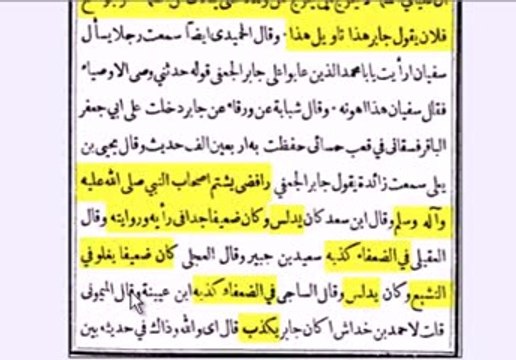 فلان يقول جابر هذا تاويل هذا ٠ وقال الحميدى ايضاً سمعت رجلا يسأل
سفيان ارأيت يا ابا محمد الذين عابوا على جابر الجعفى قوله حدثنى وصى الاوصياء
فقال سفيان هذا اهونه ٠ وقال شبابة عن ورقاء عن جابر دخلت على ابى جعفر
الباقر فسقانى فى قعب حسائى حفظت به اربعين الف حديث وقال يحيى بن
يعلى سمعت زائدة يقول جابر الجعفي رافضى يشتم اصحاب النبي صلى الله عليه
وآله وسلم وقال ابن سعد كان يدلس وكان ضعيفا جدا فى رأيه وروايته وقال
العقيلى فى الضعفاء كذبه سعيد بن جبير وقال العجلى كان ضعيفا يغلو فى
التشيع وكان يدلس وقال الساجى فى الضعفاء كذبه ابن عيينة وقال الميمونى
قلت لاحمد بن خداش اكان جابر يكذب قال اى والله وذاك فى حديثه بين